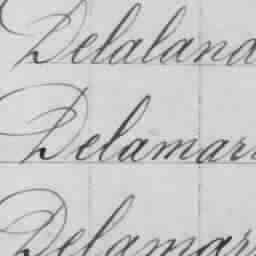 Delaland
Delamar
Delamar